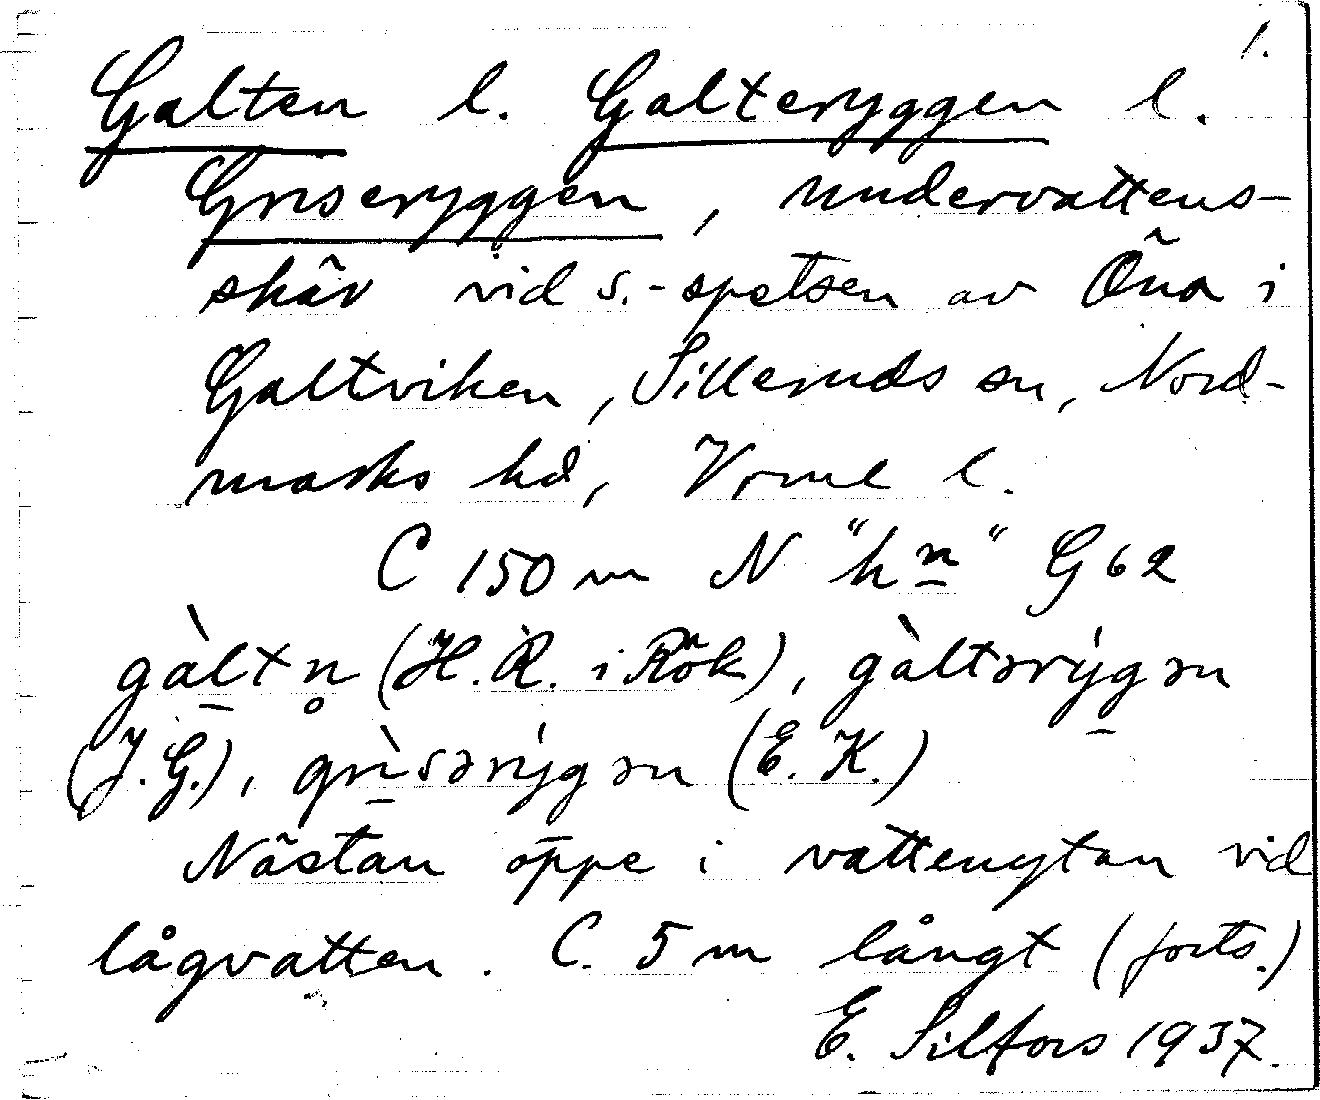 1.
Galten l. Galteryggen l.
Griseryggen, undervattens-
skär vid s.-spetsen av Öna i
Galtviken, Silleruds sn, Nord-
marks hd, Vrml l.
C 150 m N "hn" G62
gàltn̥ (H.R. i Rök), gàltərýgən
(J.G.), grìsərýgən (E. K.)
Nästan öppe i vattenytan vid
lågvatten. C. 5 m långt (forts.)
E. Silfors 1937.